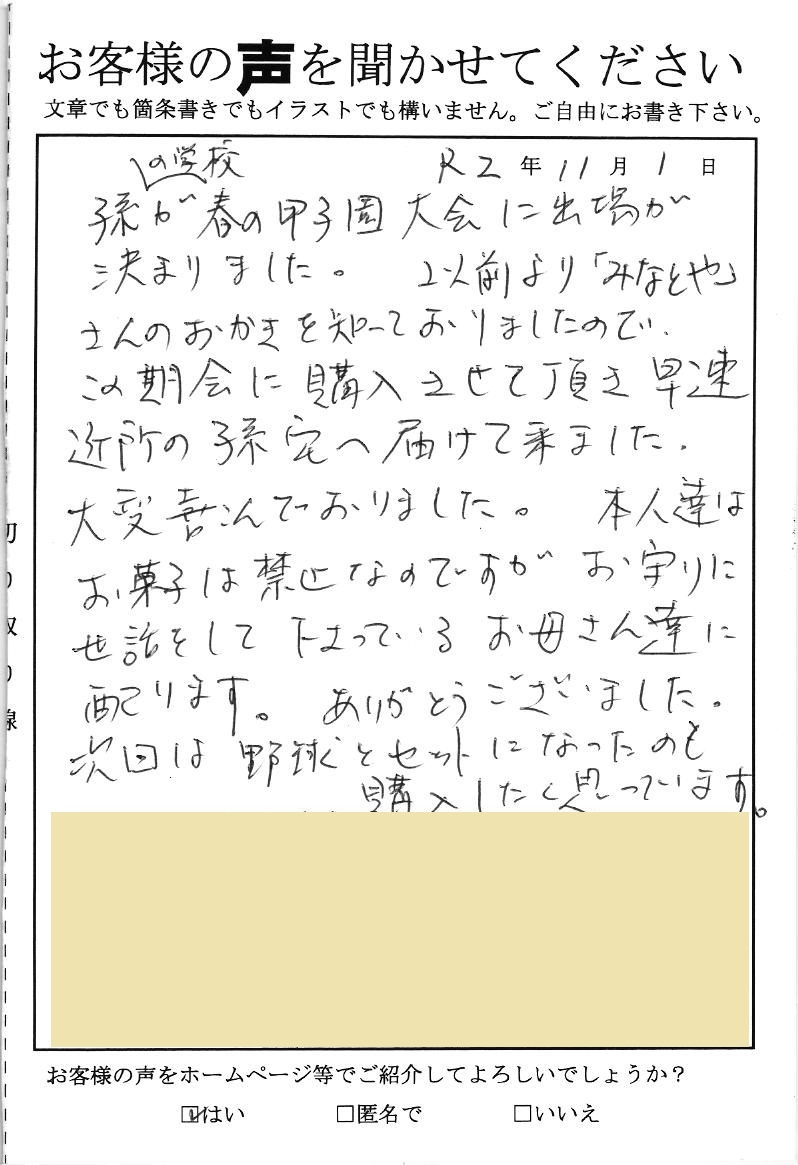 お客様の声を聞かせてください
文章でも箇条書きでもイラストでも構いません。ご自由にお書き下さい。
R2年11月1日
の学校
孫が春の甲子園大会に出場が
決まりました。 以前より「みなとや」
さんのおかきを知っておりましたので、
この期会に購入させて頂き早速
近所の孫宅へ届けて来ました。
大変喜こんでおりました。 本人達は
お菓子は禁止なのですが お守りに
せ話をして下さっている お母さん達に
配ります。 ありがとうございました。
次回は 野球とセットになったのも
購入したく思っています。
切り取り線
お客様の声をホームページ等でご紹介してよろしいでしょうか？
☑はい □匿名で □いいえ